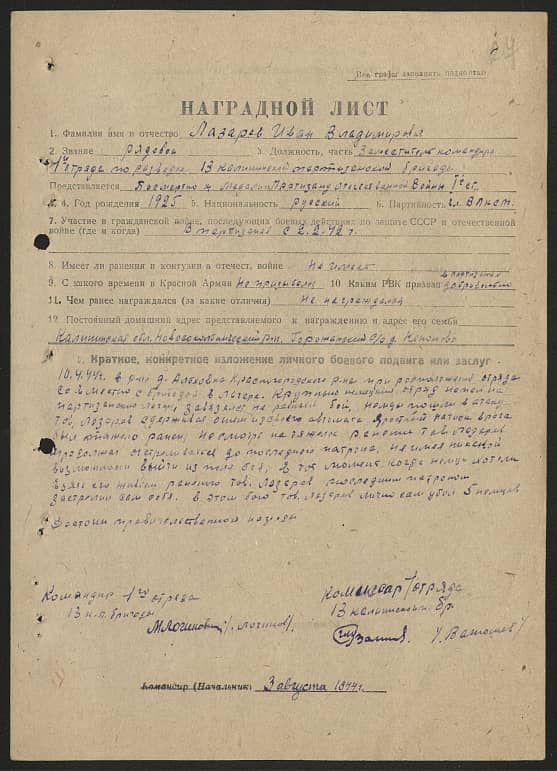 Все графы заполнять полностью
НАГРАДНОЙ ЛИСТ
1. Фамилия имя и отчество Лазарев Иван Владимирович
2. Звание рядовой 3. Должность, часть Заместитель командира
1го отряда по разведке 13 калининской партизанской бригады
Представляется Посмертно к Медали Партизану отечественной Войны I ст.
4. Год рождения 1925 5. Национальность русский 6. Партийность чл. ВЛКСМ.
7. Участие в гражданской войне, последующих боевых действиях по защите СССР и отечественной
войне (где и когда) В партизанах с 2.2.42 г.
8. Имеет ли ранения и контузии в отечест. войне не имеет
9. С какого времени в Красной Армии не призывался 10 Каким РВК призван в партизаны добровольно
11. Чем ранее награждался (за какие отличия) Не награждался
12. Постоянный домашний адрес представляемого к награждению и адрес его семьи
Калининская обл. р-н. с/с д.
Краткое, конкретное изложение личного боевого подвига или заслуг
10.4.44 г. в р-не д. Красногородского р-на при расположении отряда
совместно с бригадой в лагере. Крупный немецкий отряд напал на
партизанский лагерь, завязался не равный бой, немцы пошли в атаку.
тов. Лазарев сдерживая огнем своего автомата яростный натиск врага
был тяжело ранен, не смотря на тяжелое ранение тов Лазарев
продолжал отстреливаться до последнего патрона, не имея никакой
возможности выйти из поля боя, в тот момент когда немцы хотели
взять его живым раненого тов. Лазарев последним патроном
застрелил сам себя. в этом бою тов. Лазарев лично сам убил 5 немцев
Достоин правительственной награды
Командир 1го отряда
13 к.п. бригады
/Логинов/
Комиссар 1 отряда
13 калининской бр.
Командир (Начальник) 3 августа 1944 г.